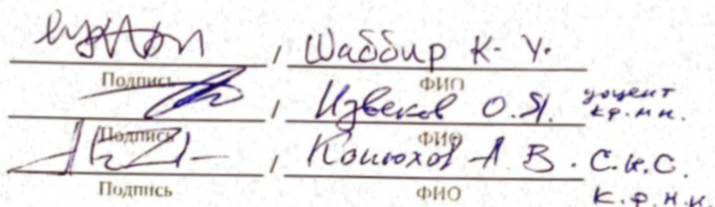 , Шаббир К. У.
Подпись ФИО
, Извеков О.Я. доцент к.ф.м.н.
Подпись ФИО
, Конюхов А. В. с.н.с.
Подпись ФИО к.ф.м.н.